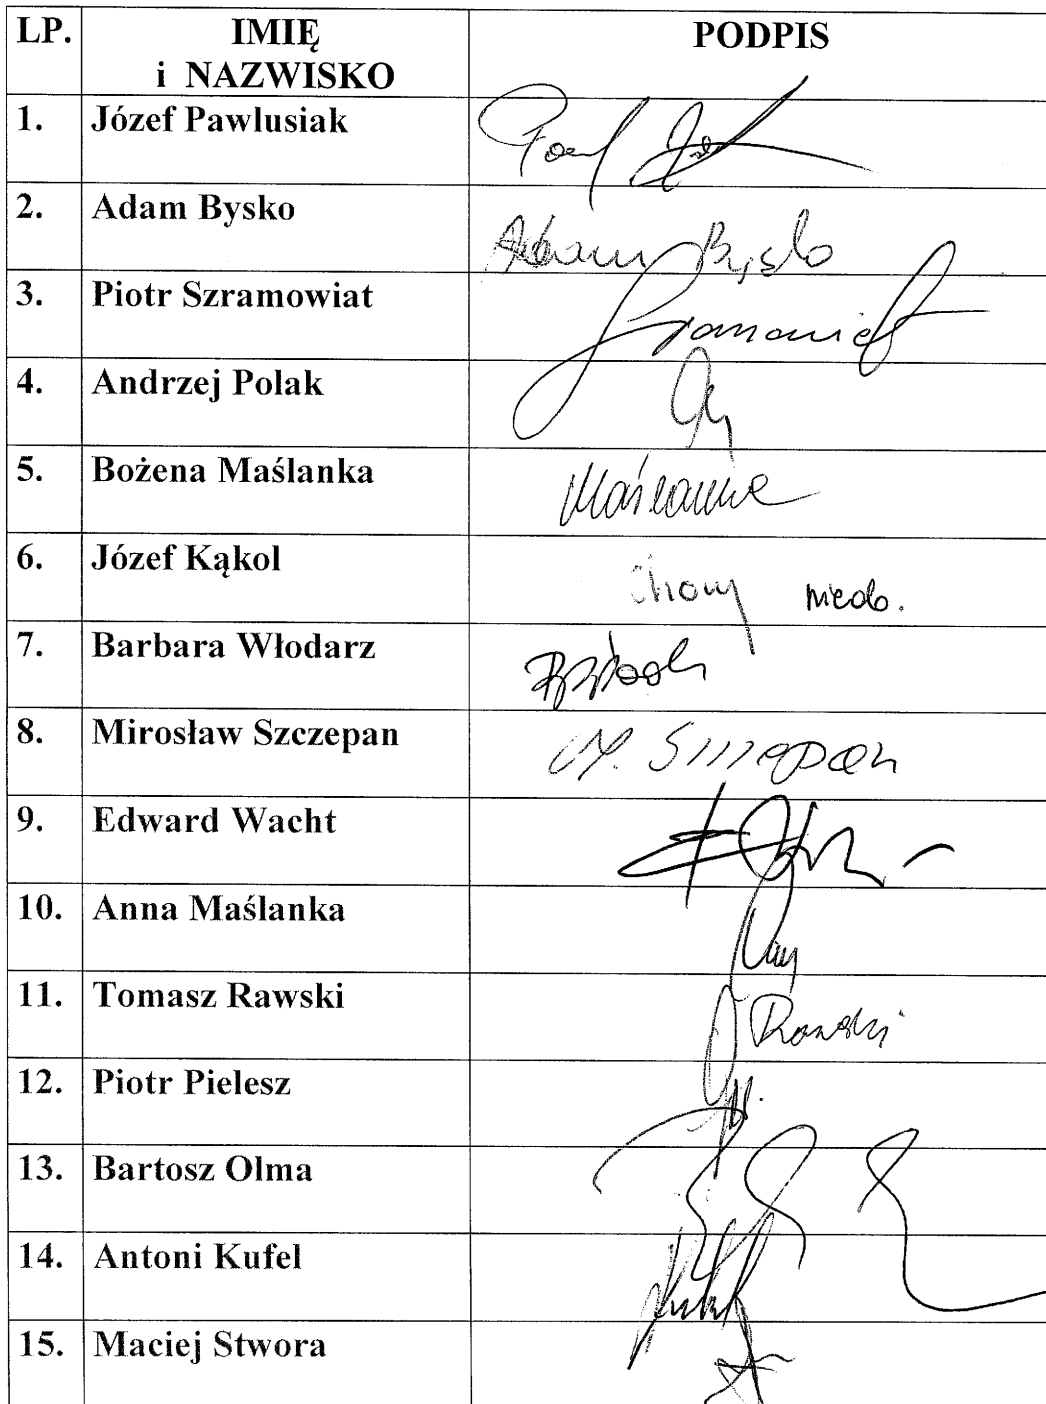 LP. IMIĘ i NAZWISKO PODPIS
1. Józef Pawlusiak
2. Adam Bysko Adam Bysko
3. Piotr Szramowiat Szramowiat
4. Andrzej Polak
5. Bożena Maślanka Maślanka
6. Józef Kąkol
7. Barbara Włodarz
8. Mirosław Szczepan M. Szczepan
9. Edward Wacht
10. Anna Maślanka
11. Tomasz Rawski Rawski
12. Piotr Pielesz
13. Bartosz Olma
14. Antoni Kufel
15. Maciej Stwora